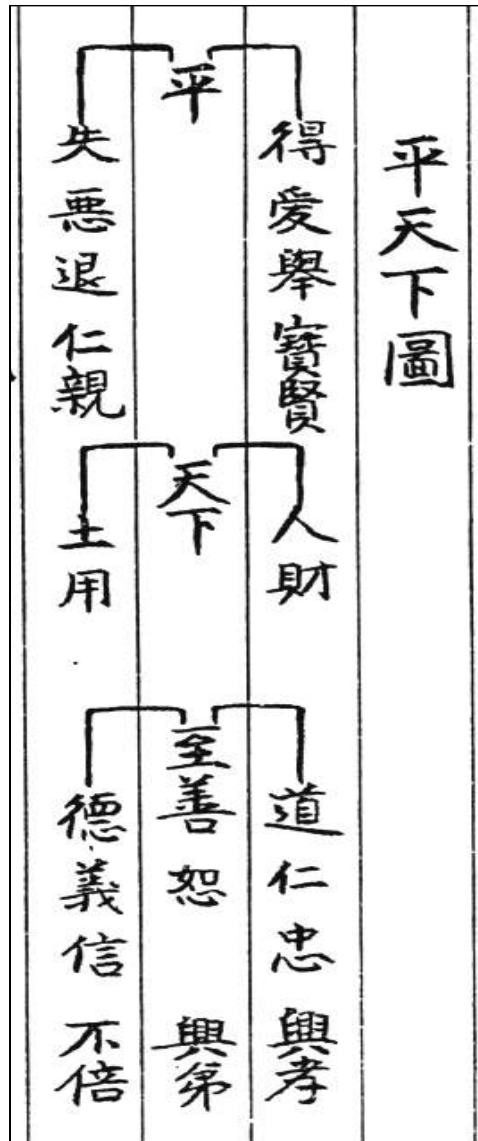 平天下圖
得愛舉寶賢
平
失惡退仁親
人財
天下
土用
道仁忠興孝
至善恕興弟
德義信不倍